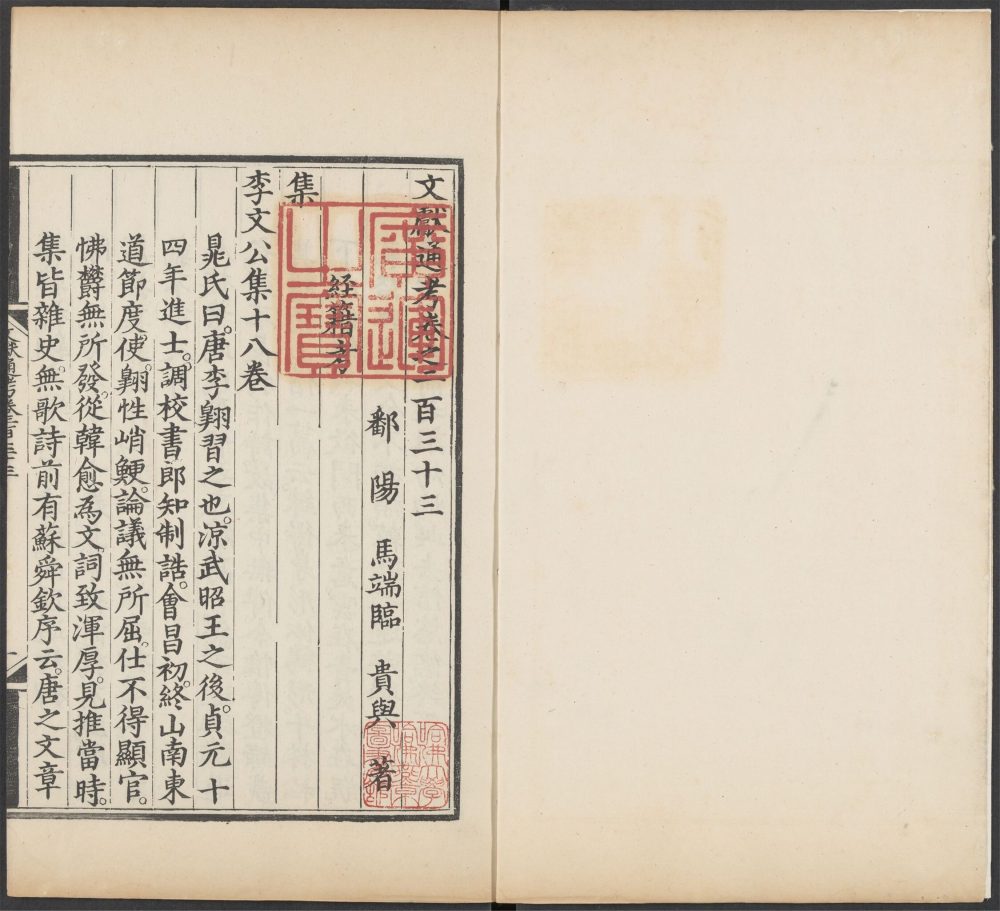 文獻通考卷之二百三十三
鄱陽 馬端臨 貴與 著
経籍考
集
李文公集十八卷
晁氏曰。唐李翶習之也。凉武昭王之後。貞元十
四年進士。調校書郎知制誥。會昌初。終山南東
道節度使。翶性峭鯁。論議無所屈。仕不得顯官。
怫欝無所發。從韓愈為文。詞致渾厚。見推當時。
集皆雜史。無歌詩前有蘇舜欽序云。唐之文章
廣運
之寶
哈佛大學